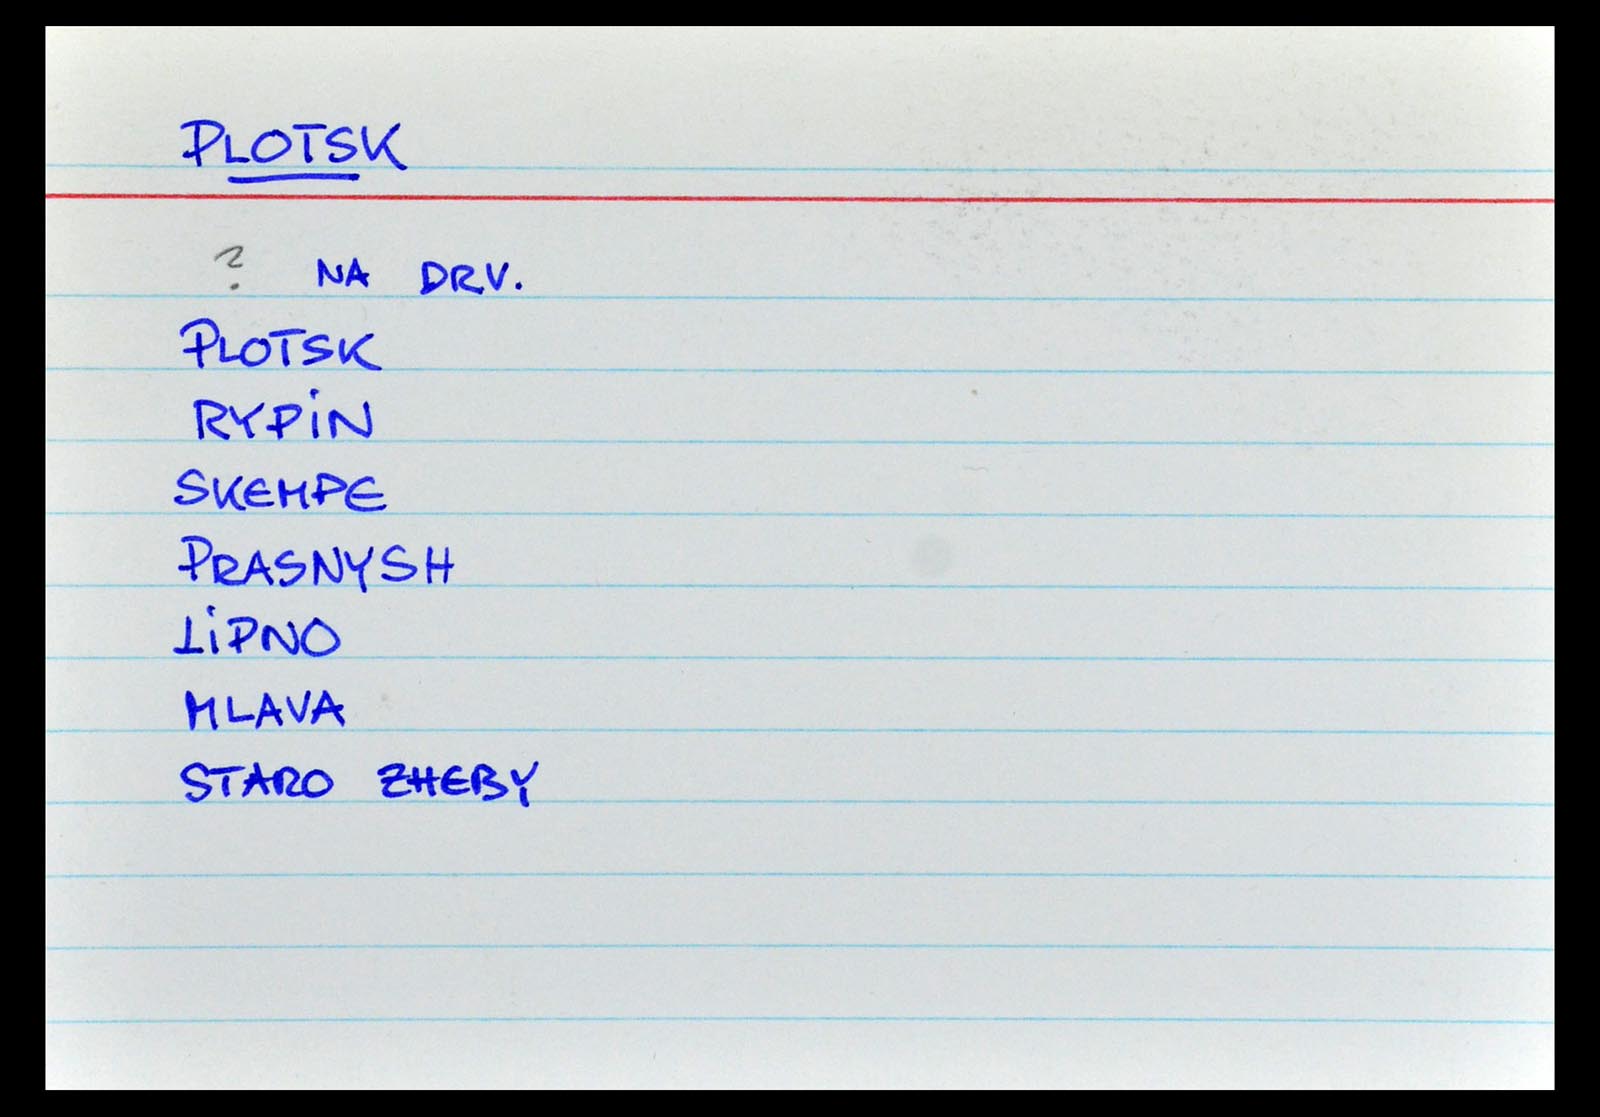 PLOTSK
? NA DRV.
PLOTSK
RYPIN
SKEMPE
PRASNYSH
LIPNO
MLAVA
STARO ZHEBY